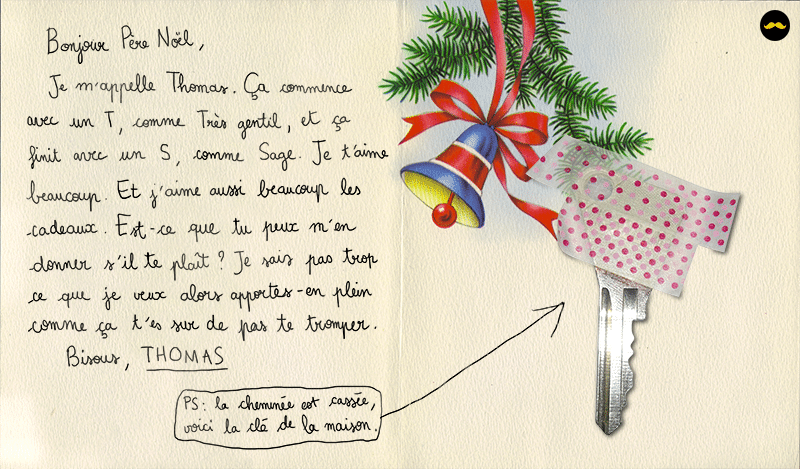 Bonjour Père Noël,
Je m'appelle Thomas. Ça commence
avec un T, comme Très gentil, et ça
finit avec un S, comme Sage. Je t'aime
beaucoup. Et j'aime aussi beaucoup les
cadeaux. Est-ce que tu peux m'en
donner s'il te plaît ? Je sais pas trop
ce que je veux alors apportes-en plein
comme ça t'es sur de pas te tromper.
Bisous, THOMAS
PS: la cheminée est cassée,
voici la clé de la maison.